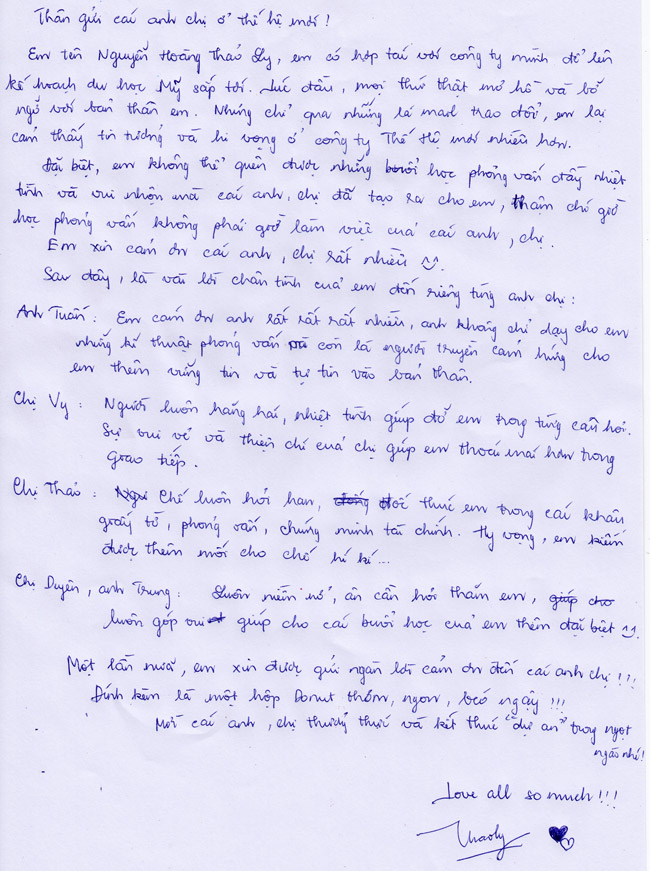 Thân gửi các anh chị ở thế hệ mới !
Em tên Nguyễn Hoàng Thảo Ly, em có hợp tác với công ty mình để lên
kế hoạch du học Mỹ sắp tới. Lúc đầu, mọi thứ thật mơ hồ và bỡ
ngỡ với bản thân em. Nhưng chỉ qua những lá mail trao đổi, em lại
cảm thấy tin tưởng và hi vọng ở công ty Thế Hệ mới nhiều hơn.
Đặc biệt, em không thể quên được những buổi học phỏng vấn đầy nhiệt
tình và vui nhộn mà các anh, chị đã tạo ra cho em, thậm chí giờ
học phỏng vấn không phải giờ làm việc của các anh, chị.
Em xin cảm ơn các anh, chị rất nhiều
Sau đây, là vài lời chân tình của em đến riêng từng anh chị :
Anh Tuấn : Em cảm ơn anh rất rất rất nhiều, anh không chỉ dạy cho em
những kĩ thuật phỏng vấn mà còn là người truyền cảm hứng cho
em thêm vững tin và tự tin vào bản thân.
Chị Vy : Người luôn hăng hái, nhiệt tình giúp đỡ em trong từng câu hỏi.
Sự vui vẻ và thiện chí của chị giúp em thoải mái hơn trong
giao tiếp.
Chị Thảo : Chế luôn hỏi han, đốc thúc em trong các khâu
giấy tờ, phỏng vấn, chứng minh tài chính. Hy vọng, em kiếm
được thêm mối cho chế hí hí...
Chị Duyên, anh Trung : Luôn niềm nở, ân cần hỏi thăm em,
luôn góp vui giúp cho các buổi học của em thêm đặc biệt
Một lần nữa, em xin được gửi ngàn lời cảm ơn đến các anh chị !!!
Đính kèm là một hộp Donut thơm, ngon, béo ngậy !!!
Mời các anh, chị thưởng thức và kết thúc "dự án" trong ngọt
ngào nhé!
Love all so much !!!
Thaoly